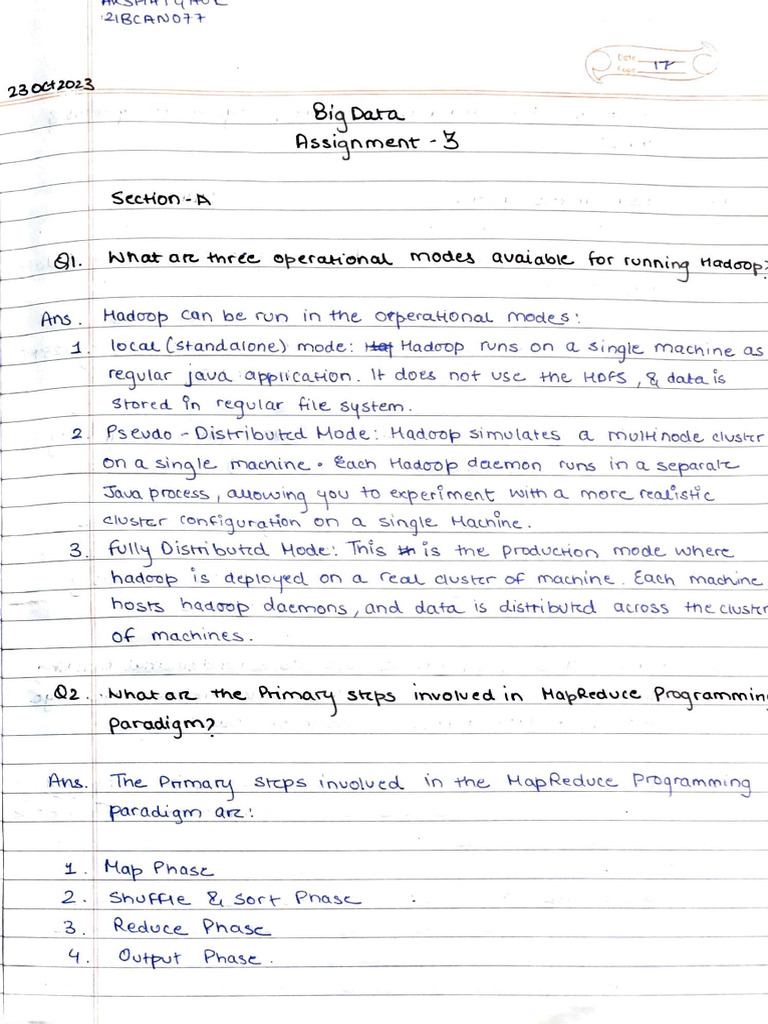 21BCAN077
Date
Page 17
23 Oct 2023
Big Data
Assignment - 3
Section - A
Q1. What are three operational modes avaiable for running Hadoop?
Ans. Hadoop can be run in the operational modes:
1. local (standalone) mode: Hadoop runs on a single machine as
regular java application. It does not use the HDFS, & data is
stored in regular file system.
2. Pseudo - Distributed Mode: Hadoop simulates a multinode cluster
on a single machine. Each Hadoop daemon runs in a separate
Java process, allowing you to experiment with a more realistic
cluster configuration on a single Machine.
3. Fully Distributed Mode: This is the production mode where
hadoop is deployed on a real cluster of machine. Each machine
hosts hadoop daemons, and data is distributed across the cluster
of machines.
Q2. What are the Primary steps involved in MapReduce Programming
paradigm?
Ans. The Primary steps involved in the MapReduce Programming
paradigm are:
1. Map Phase
2. Shuffle & Sort Phase
3. Reduce Phase
4. Output Phase.